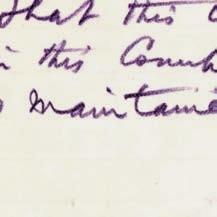 That this
in this Coun
maintaine